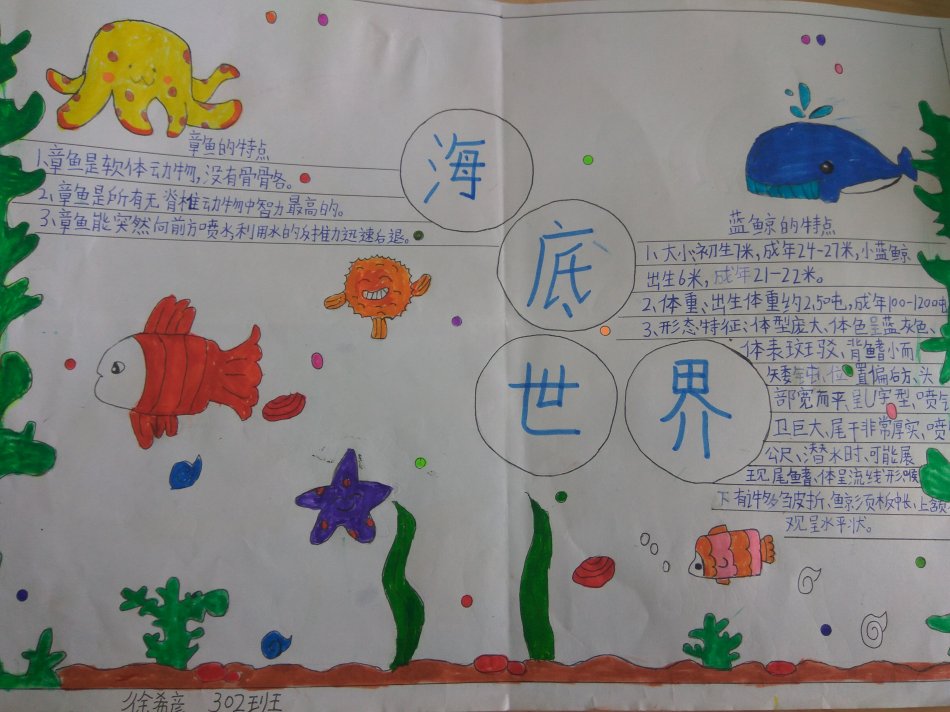 章鱼的特点
1、章鱼是软体动物,没有骨骼。
2、章鱼是所有无脊椎动物中智力最高的。
3、章鱼能突然向前方喷水,利用水的反推力迅速后退。
海
底
世
界
蓝鲸的特点
1、大小:初生7米,成年24-27米,小蓝鲸
出生6米,成年21-22米。
2、体重:出生体重约2.50吨,成年100-120吨
3、形态特征:体型庞大、体色呈蓝灰色、
体表斑驳、背鳍小而
位置偏后方、头
部宽而平呈U字型、喷气
巨大、尾干非常厚实、喷
公尺、潜水时、可能展
现尾鳍、体呈流线形喉
下有许多皱皮折、鲸须板中长、上颚
观呈水平状。
徐希彦 302班